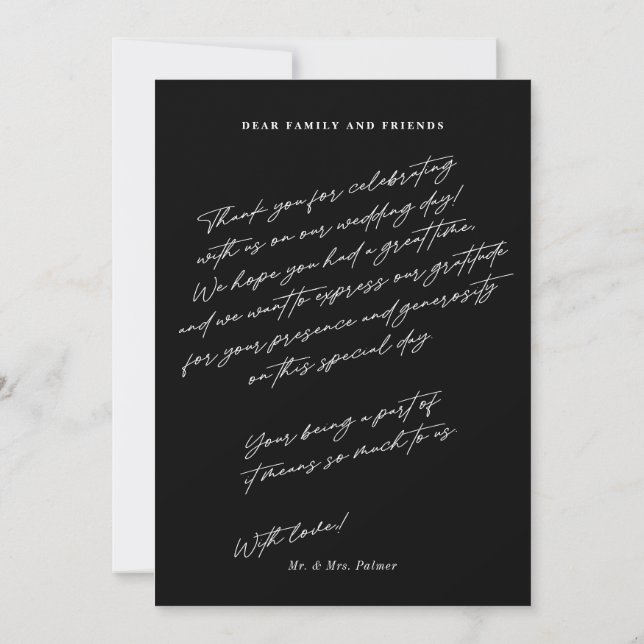 DEAR FAMILY AND FRIENDS
Thank you for celebrating
with us on our wedding day!
We hope you had a great time,
and we want to express our gratitude
for your presence and generosity
on this special day.
Your being a part of
it means so much to us.
With love,!
Mr. & Mrs. Palmer